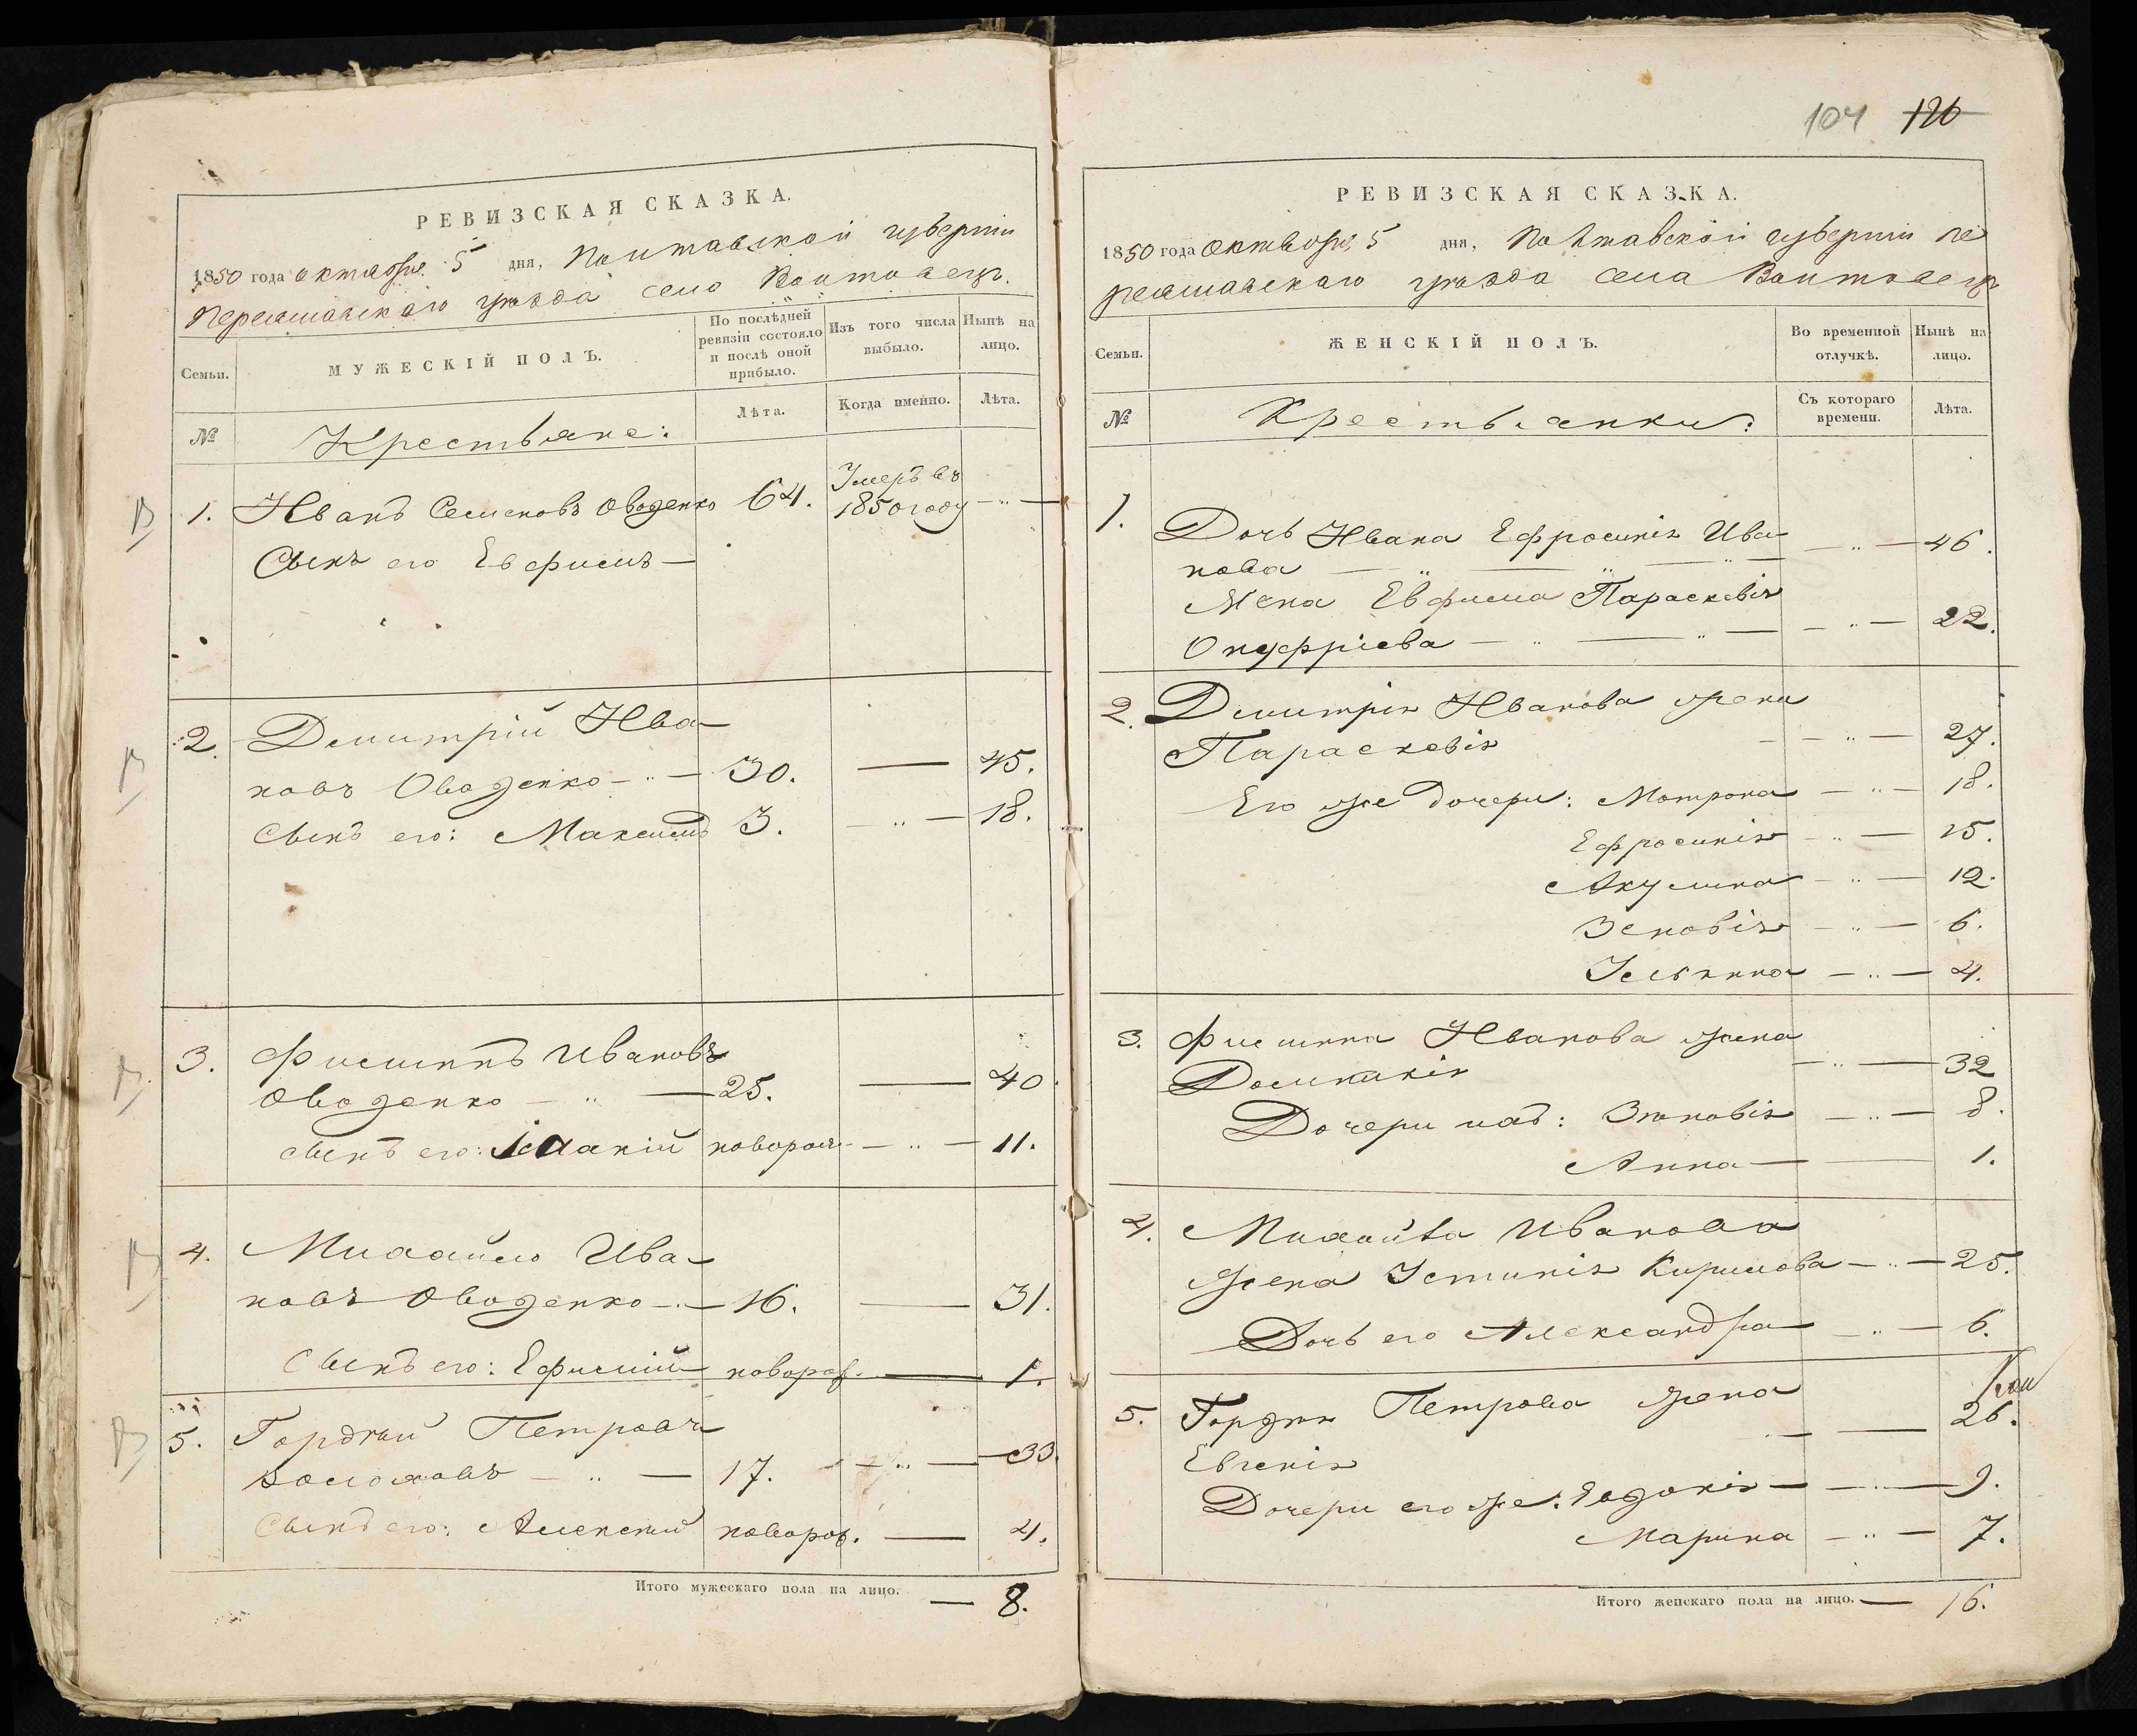 РЕВИЗСКАЯ СКАЗКА.
1850 года октября 5 дня, Полтавской губерніи
Переяславскаго уѣзда села Войтовецъ
Семьи.
МУЖЕСКІЙ ПОЛЪ.
По послѣдней ревизіи состояло и послѣ оной прибыло.
Изъ того числа выбыло.
Нынѣ на лицо.
№
Крестьяне:
Лѣта.
Когда именно.
Лѣта.
1. Иванъ Семеновъ Оводенко 64. Умеръ въ 1850 году — „ —
Сынъ его Евфимъ —
2. Димитрій Ива-
новъ Оводенко — „ — 30. — 45.
Сынъ его: Максимъ 3. — „ — 18.
3. Филиппъ Ивановъ
Оводенко — „ — 25. — 40.
сынъ его: новорож. — „ — 11.
4. Михайло Ива-
новъ Оводенко — „ — 16. — 31.
Сынъ его: Ефимій новорож. — 1.
5. Гордѣй Петровъ
— „ — 17. — „ — 33.
Сынъ его: Алексѣй новорож. — 4.
Итого мужескаго пола на лицо. — 8.
104 126
РЕВИЗСКАЯ СКАЗКА.
1850 года Октября 5 дня, Полтавской губерніи Пе
реяславскаго уѣзда села Войтовецъ
Семьи.
ЖЕНСКІЙ ПОЛЪ.
Во временной отлучкѣ.
Нынѣ на лицо.
№
Крестьянки:
Съ котораго времени.
Лѣта.
1. Дочь Ивана Ефросинія Ива-
нова — „ — „ — „ — — „ — 46.
Жена Евфима Параскевія
Онуфріева — „ — „ — — „ — 22.
2. Димитрія Иванова жена
Параскевія — „ — 27.
Его же дочери: Матрона — „ — 18.
Ефросинія — „ — 15.
Акулина — „ — 12.
Зеновія — „ — 6.
Ульяна — „ — 4.
3. Филиппа Иванова жена
Домникія — „ — 32
Дочери ихъ: Зѣновія — „ — 8.
Анна — — 1.
4. Михайла Иванова
жена Устинія Кирилова — „ — 25.
Дочь его Александра — „ — 6.
5. Гордѣя Петрова жена
Евгенія — — 26.
Дочери его же: Евдокія — — „ — 9.
Марина — „ — 7.
Итого женскаго пола на лицо. — 16.